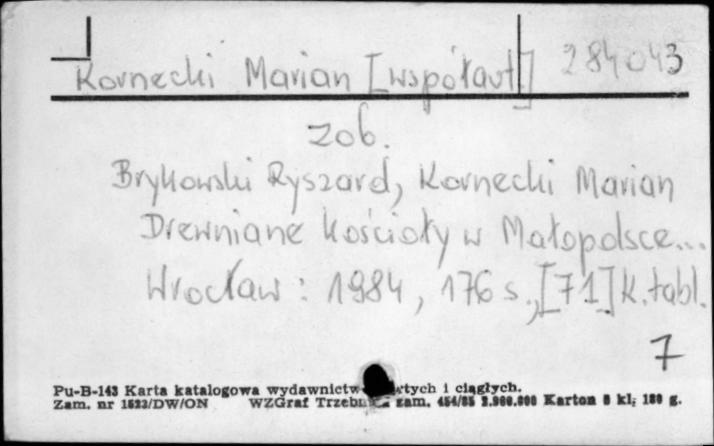 Kornecki Marian [współaut.] 284043
zob.
Brykowski Ryszard, Kornecki Marian
Drewniane kościoły w Małopolsce...
Wrocław : 1984, 176 s., [71] k. tabl.
7
Pu-B-143 Karta katalogowa wydawnictw i ciągłych.
Zam. nr 1523/DW/ON WZGraf zam. 454/85 2.900.000 Karton kl; 180 g.